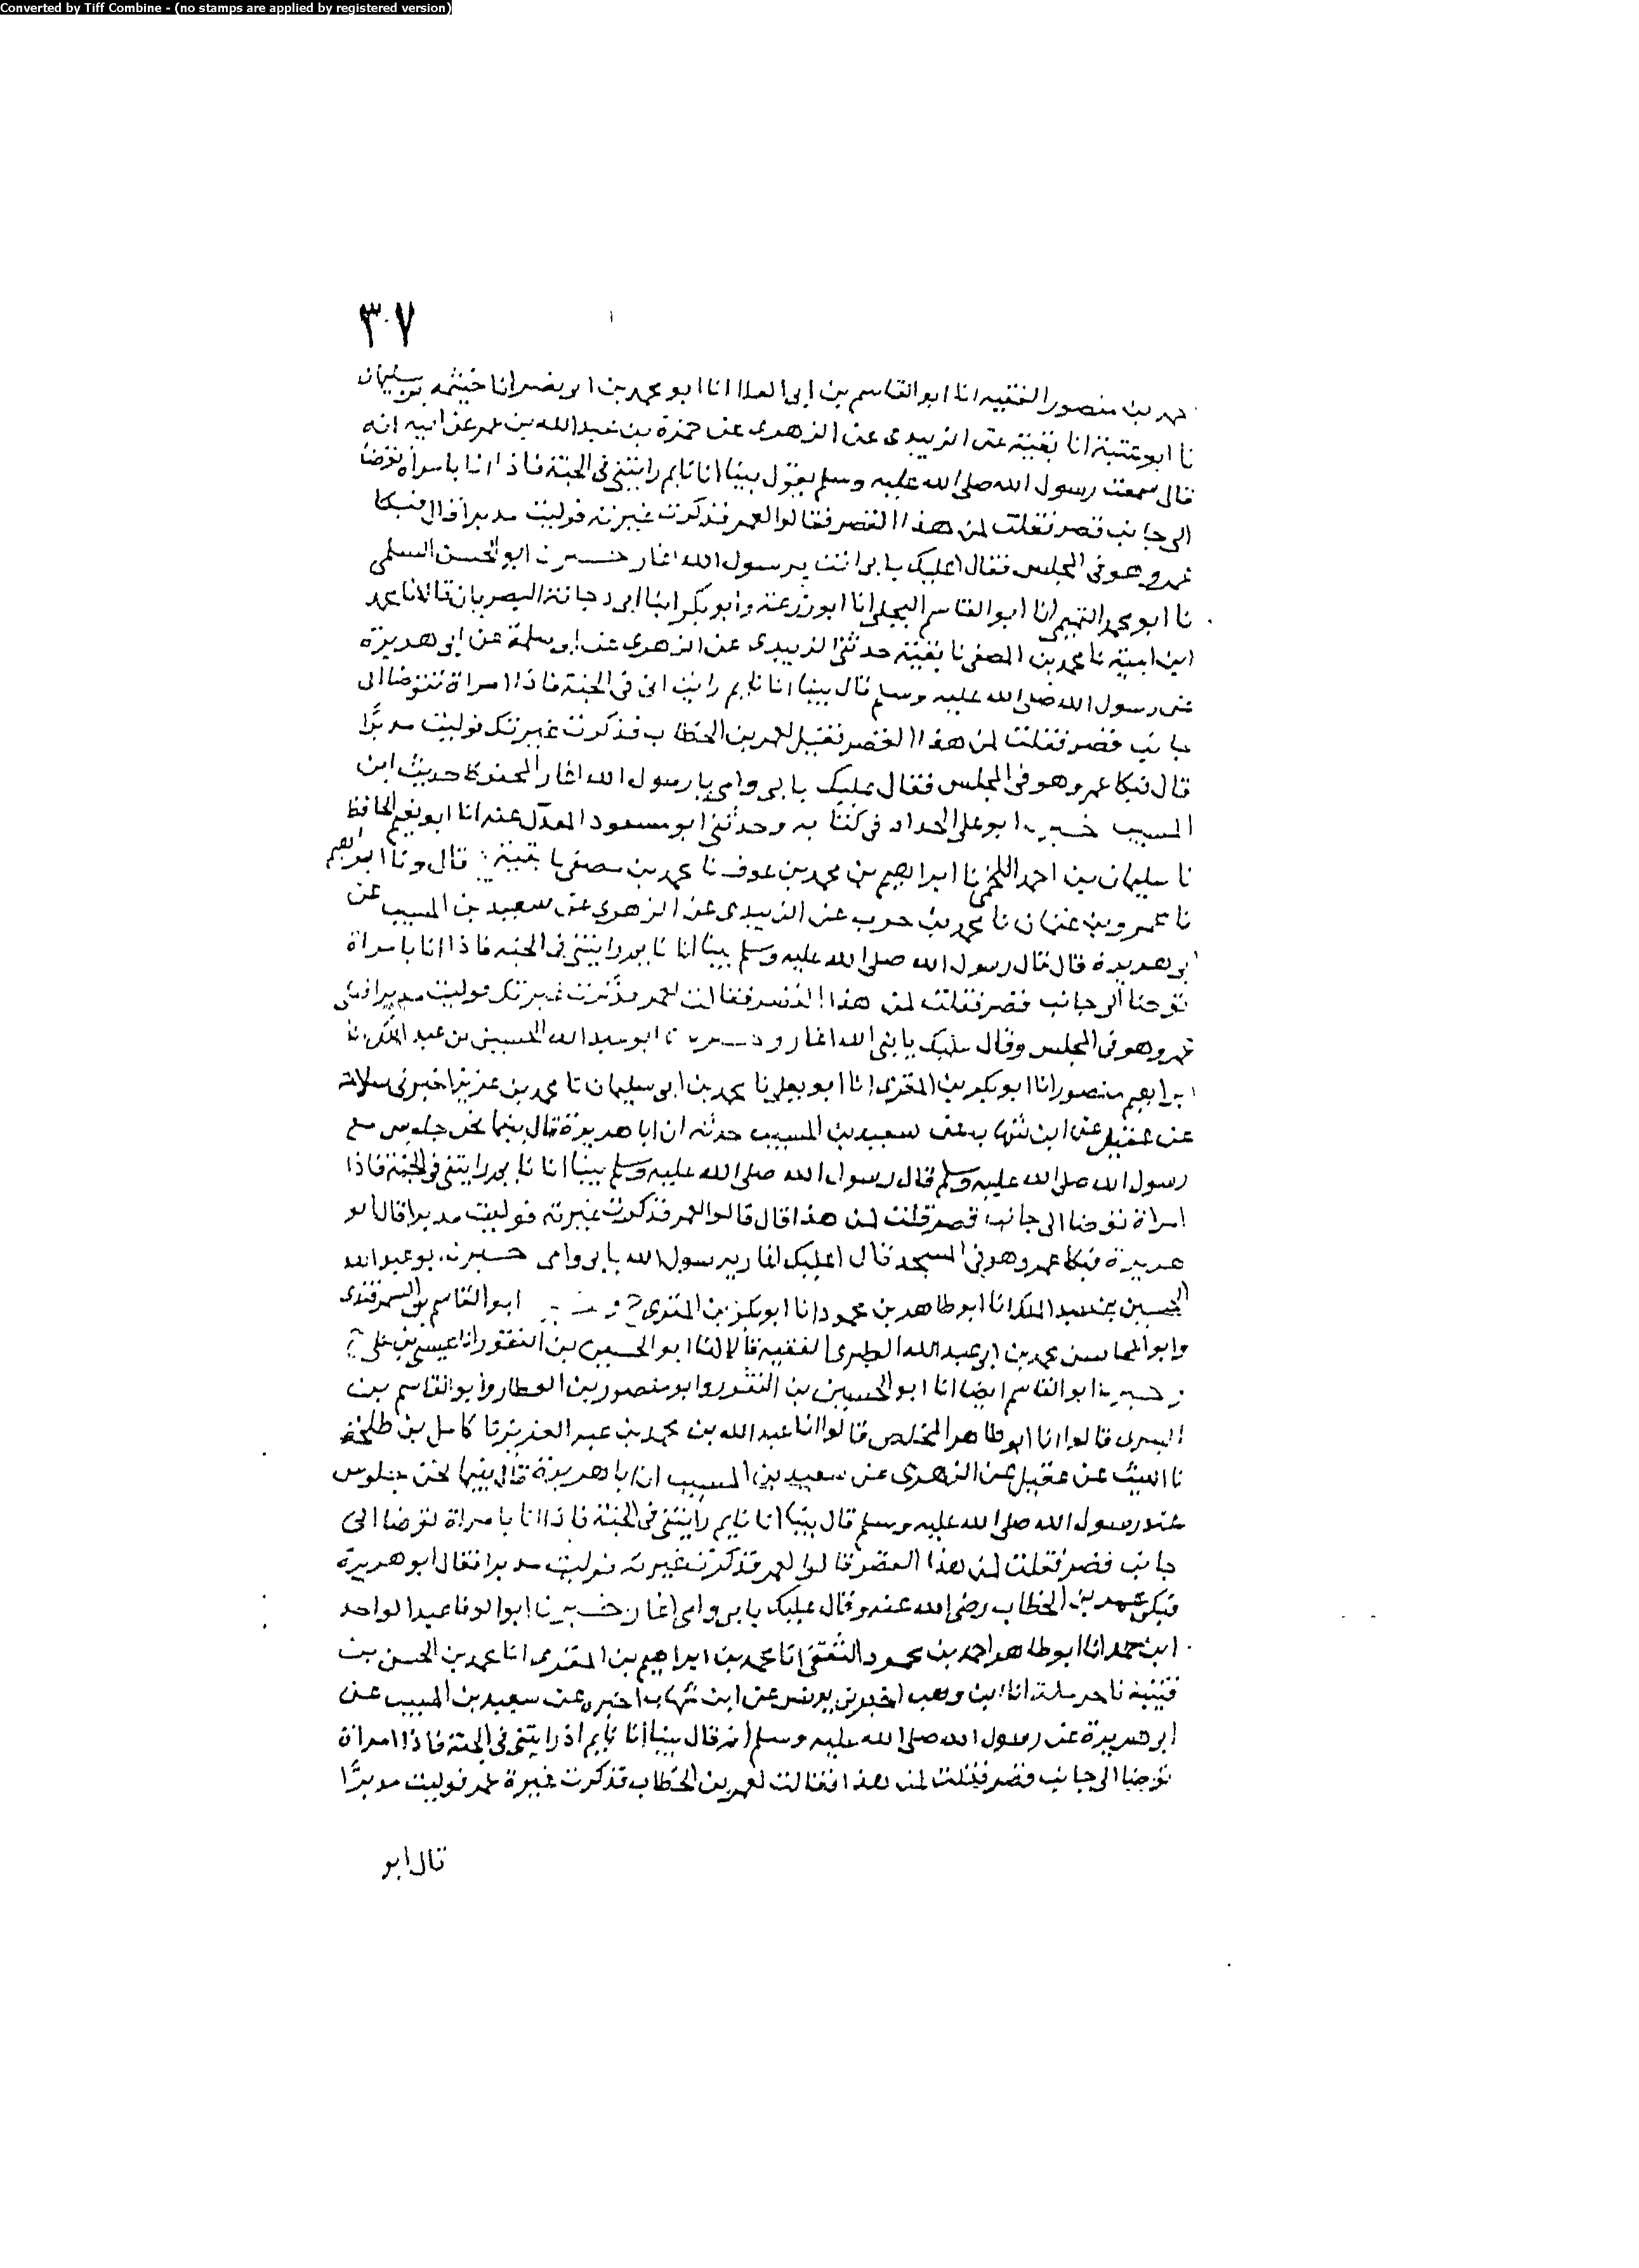 Converted by Tiff Combine - (no stamps are applied by registered version)
٣٠٧
حمد بن منصور الفقيه انا ابو القاسم بن ابي العلا انا ابو محمد بن ابي نصر انا خيثمه بن سليمان
نا ابو عتبة انا بقية عن الزبيدى عن الزهرى عن حمزة بن عبد الله بن عمر عن ابيه انه
قال سمعت رسول الله صلى الله عليه وسلم يقول بينا انا نايم رايتنى فى الجنة فاذا انا بامراة توضا
الى جانب قصر فقلت لمن هذا القصر فقالوا لعمر فذكرت غيرته فوليت مدبرا قال فبكا
عمر وهو فى المجلس فقال اعليك بابى انت يرسول الله اغار ابو الحسن السلمى
نا ابو محمد التميمى انا ابو القاسم البجلى انا ابو زرعة وابو بكر ابنا ابى دجانة البصريان قالا نا محمد
ابن امية نا محمد بن المصفى نا بقية حدثنى الزبيدى عن الزهرى عن ابى سلمة عن ابى هريرة
عن رسول الله صلى الله عليه وسلم قال بينا انا نايم رايت انى فى الجنة فاذا امراة تتوضا الى
جانب قصر فقلت لمن هذا القصر فقيل لعمر بن الخطاب فذكرت غيرتك فوليت مدبرًا
قال فبكا عمر وهو فى المجلس فقال عليك بابى وامى يا رسول الله اغار المحفوظ حديث ابن
المسيب خبرنا ابو على الحداد فى كتابه وحدثنى ابو مسعود المعدل عنه انا ابو نعيم الحافظ
نا سليمان بن احمد اللخمى نا ابراهيم بن محمد بن عوف نا محمد بن مصفى نا بقية قال ونا ابراهيم
نا عمرو بن عثمان نا محمد بن حرب عن الزبيدى عن الزهرى عن سعيد بن المسيب عن
ابى هريرة قال قال رسول الله صلى الله عليه وسلم بينا انا نايم رايتنى فى الجنه فاذا انا بامراة
توضا الى جانب قصر فقلت لمن هذا القصر فقالت لعمر فذكرت غيرتك فوليت مدبرا فبكى
عمر وهو فى المجلس وقال عليك يا نبى الله اغار و نا ابو عبد الله الحسين بن عبد الملك نا
ابراهيم بن منصور انا ابو بكر بن المقرى انا ابو يعلى نا محمد بن ابى سليمان نا محمد بن عزيز اخبرنى سلامة
عن عقيل عن ابن شهاب عن سعيد بن المسيب حدثه ان ابا هريرة قال بينما نحن جلوس مع
رسول الله صلى الله عليه وسلم قال رسول الله صلى الله عليه وسلم بينا انا نايم رايتنى فى الجنة فاذا
امراة توضا الى جانب قصر قلت لمن هذا قال قالوا لعمر فذكرت غيرته فوليت مدبرا قال ابو
هريرة فبكا عمر وهو فى المسجد قال اعليك اغار يرسول الله بابى وامى خبرنا ابو عبد الله
الحسين بن عبد الملك انا ابو طاهر بن محمود انا ابو بكر بن المقرى ح و ابو القاسم بن السمرقندى
وابو المحاسن محمد بن ابى عبد الله الطبرى الفقيه قالا انا ابو الحسين بن النقور انا عيسى بن على ح
وخبرنا ابو القاسم ايضا انا ابو الحسين بن النقور وابو منصور بن العطار وابو القاسم بن
البسرى قالوا انا ابو طاهر المخلص قالوا انا عبد الله بن محمد بن عبد العزيز نا كامل بن طلحة
نا الليث عن عقيل عن الزهرى عن سعيد بن المسيب ان ابا هريرة قال بينما نحن جلوس
عند رسول الله صلى الله عليه وسلم قال بينا انا نايم رايتنى فى الجنة فاذا انا بامراة توضا الى
جانب قصر فقلت لمن هذا القصر قالوا لعمر فذكرت غيرته فوليت مدبرا فقال ابو هريرة
فبكى عمر بن الخطاب رضى الله عنه وقال عليك بابى وامى اغار خبرنا ابو الوفا عبد الواحد
ابن حمد انا ابو طاهر احمد بن محمود الثقفى انا محمد بن ابراهيم بن المقرى انا محمد بن الحسن بن
قتيبة نا حرملة انا ابن وهب اخبرنى يونس عن ابن شهاب اخبره عن سعيد بن المسيب عن
ابى هريرة عن رسول الله صلى الله عليه وسلم انه قال بينا انا نايم اذ رايتنى فى الجنة فاذا امراة
توضا الى جانب قصر فقلت لمن هذا فقالت لعمر بن الخطاب فذكرت غيرة عمر فوليت مدبرًا
قال ابو